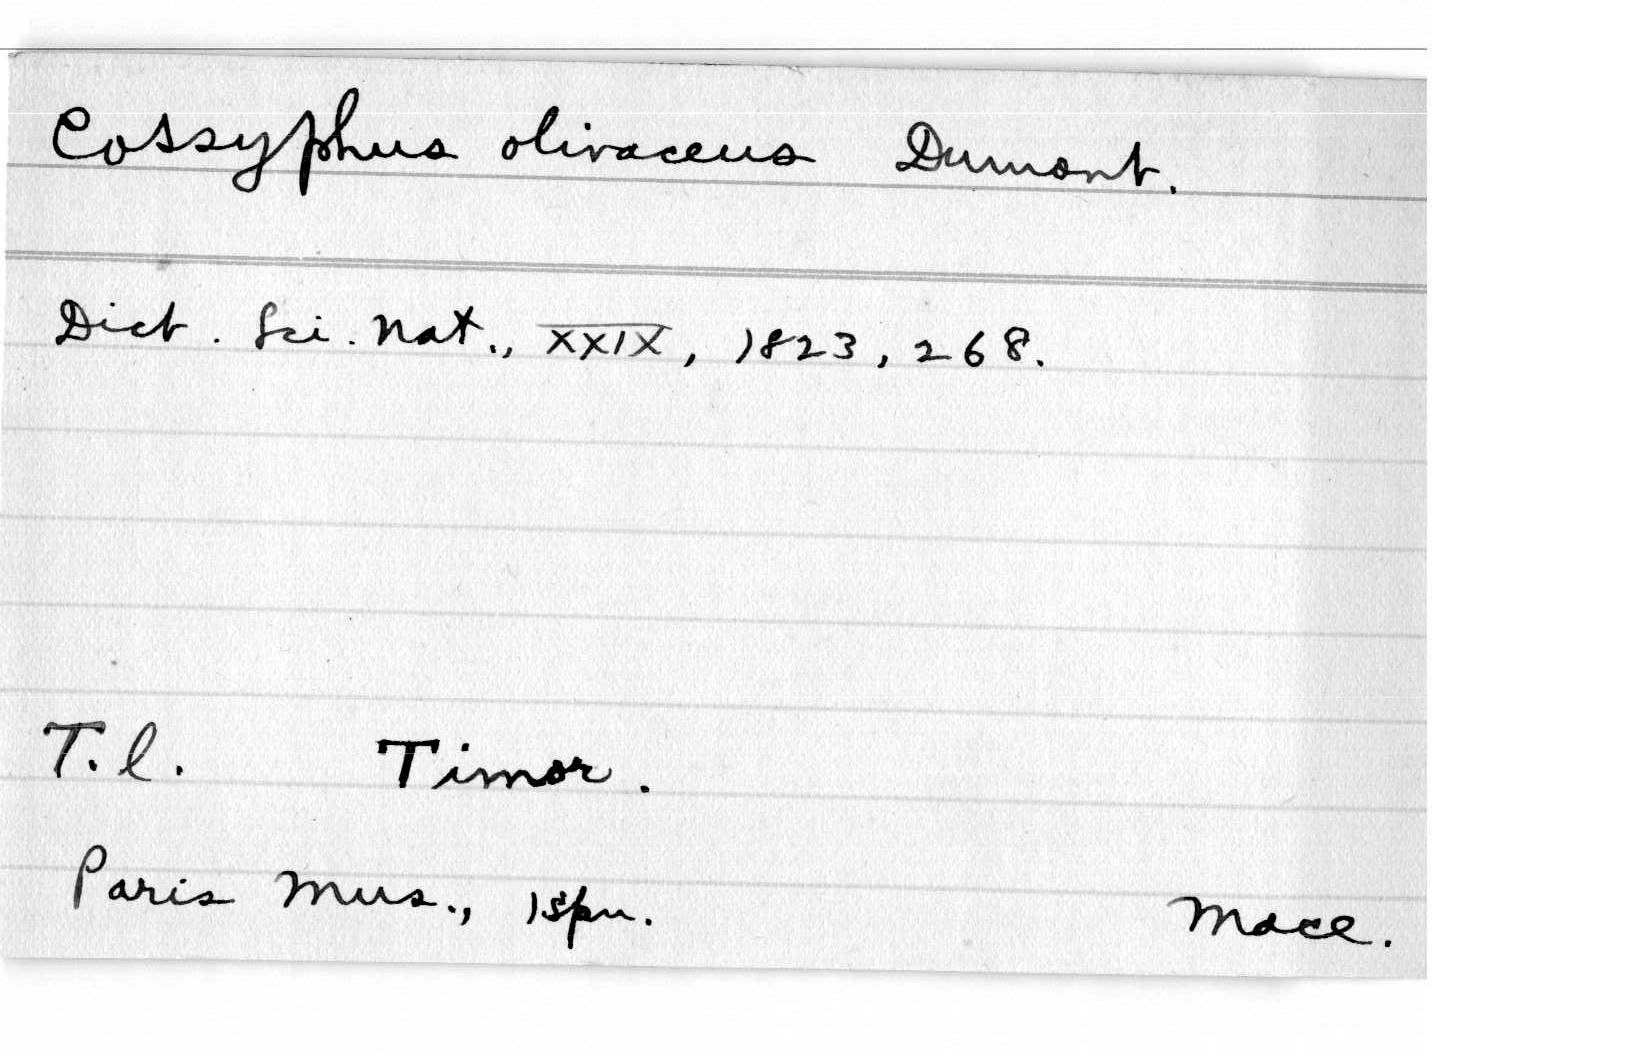 Cossyphus olivaceus Dumont.
Dict. Sci. Nat., XXIX, 1823, 268.
T.l. Timor.
Paris Mus., 1 spn. Mace.